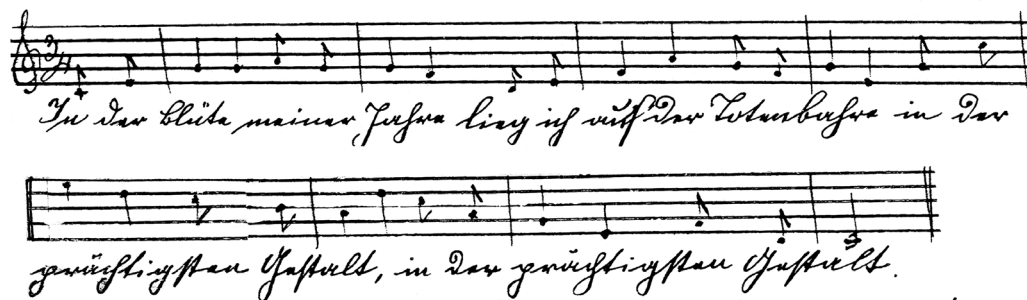 3/4
In der Blüte meiner Jahre lieg ich auf der Totenbahre in der
prächtigsten Gestalt, in der prächtigsten Gestalt.